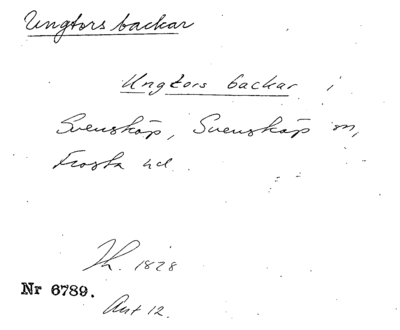 Ungtors backar
Ungtors backar i
Svensköp, Svensköp sn,
Frosta hd
Th. 1828
Nr 6789.
Ant 12.